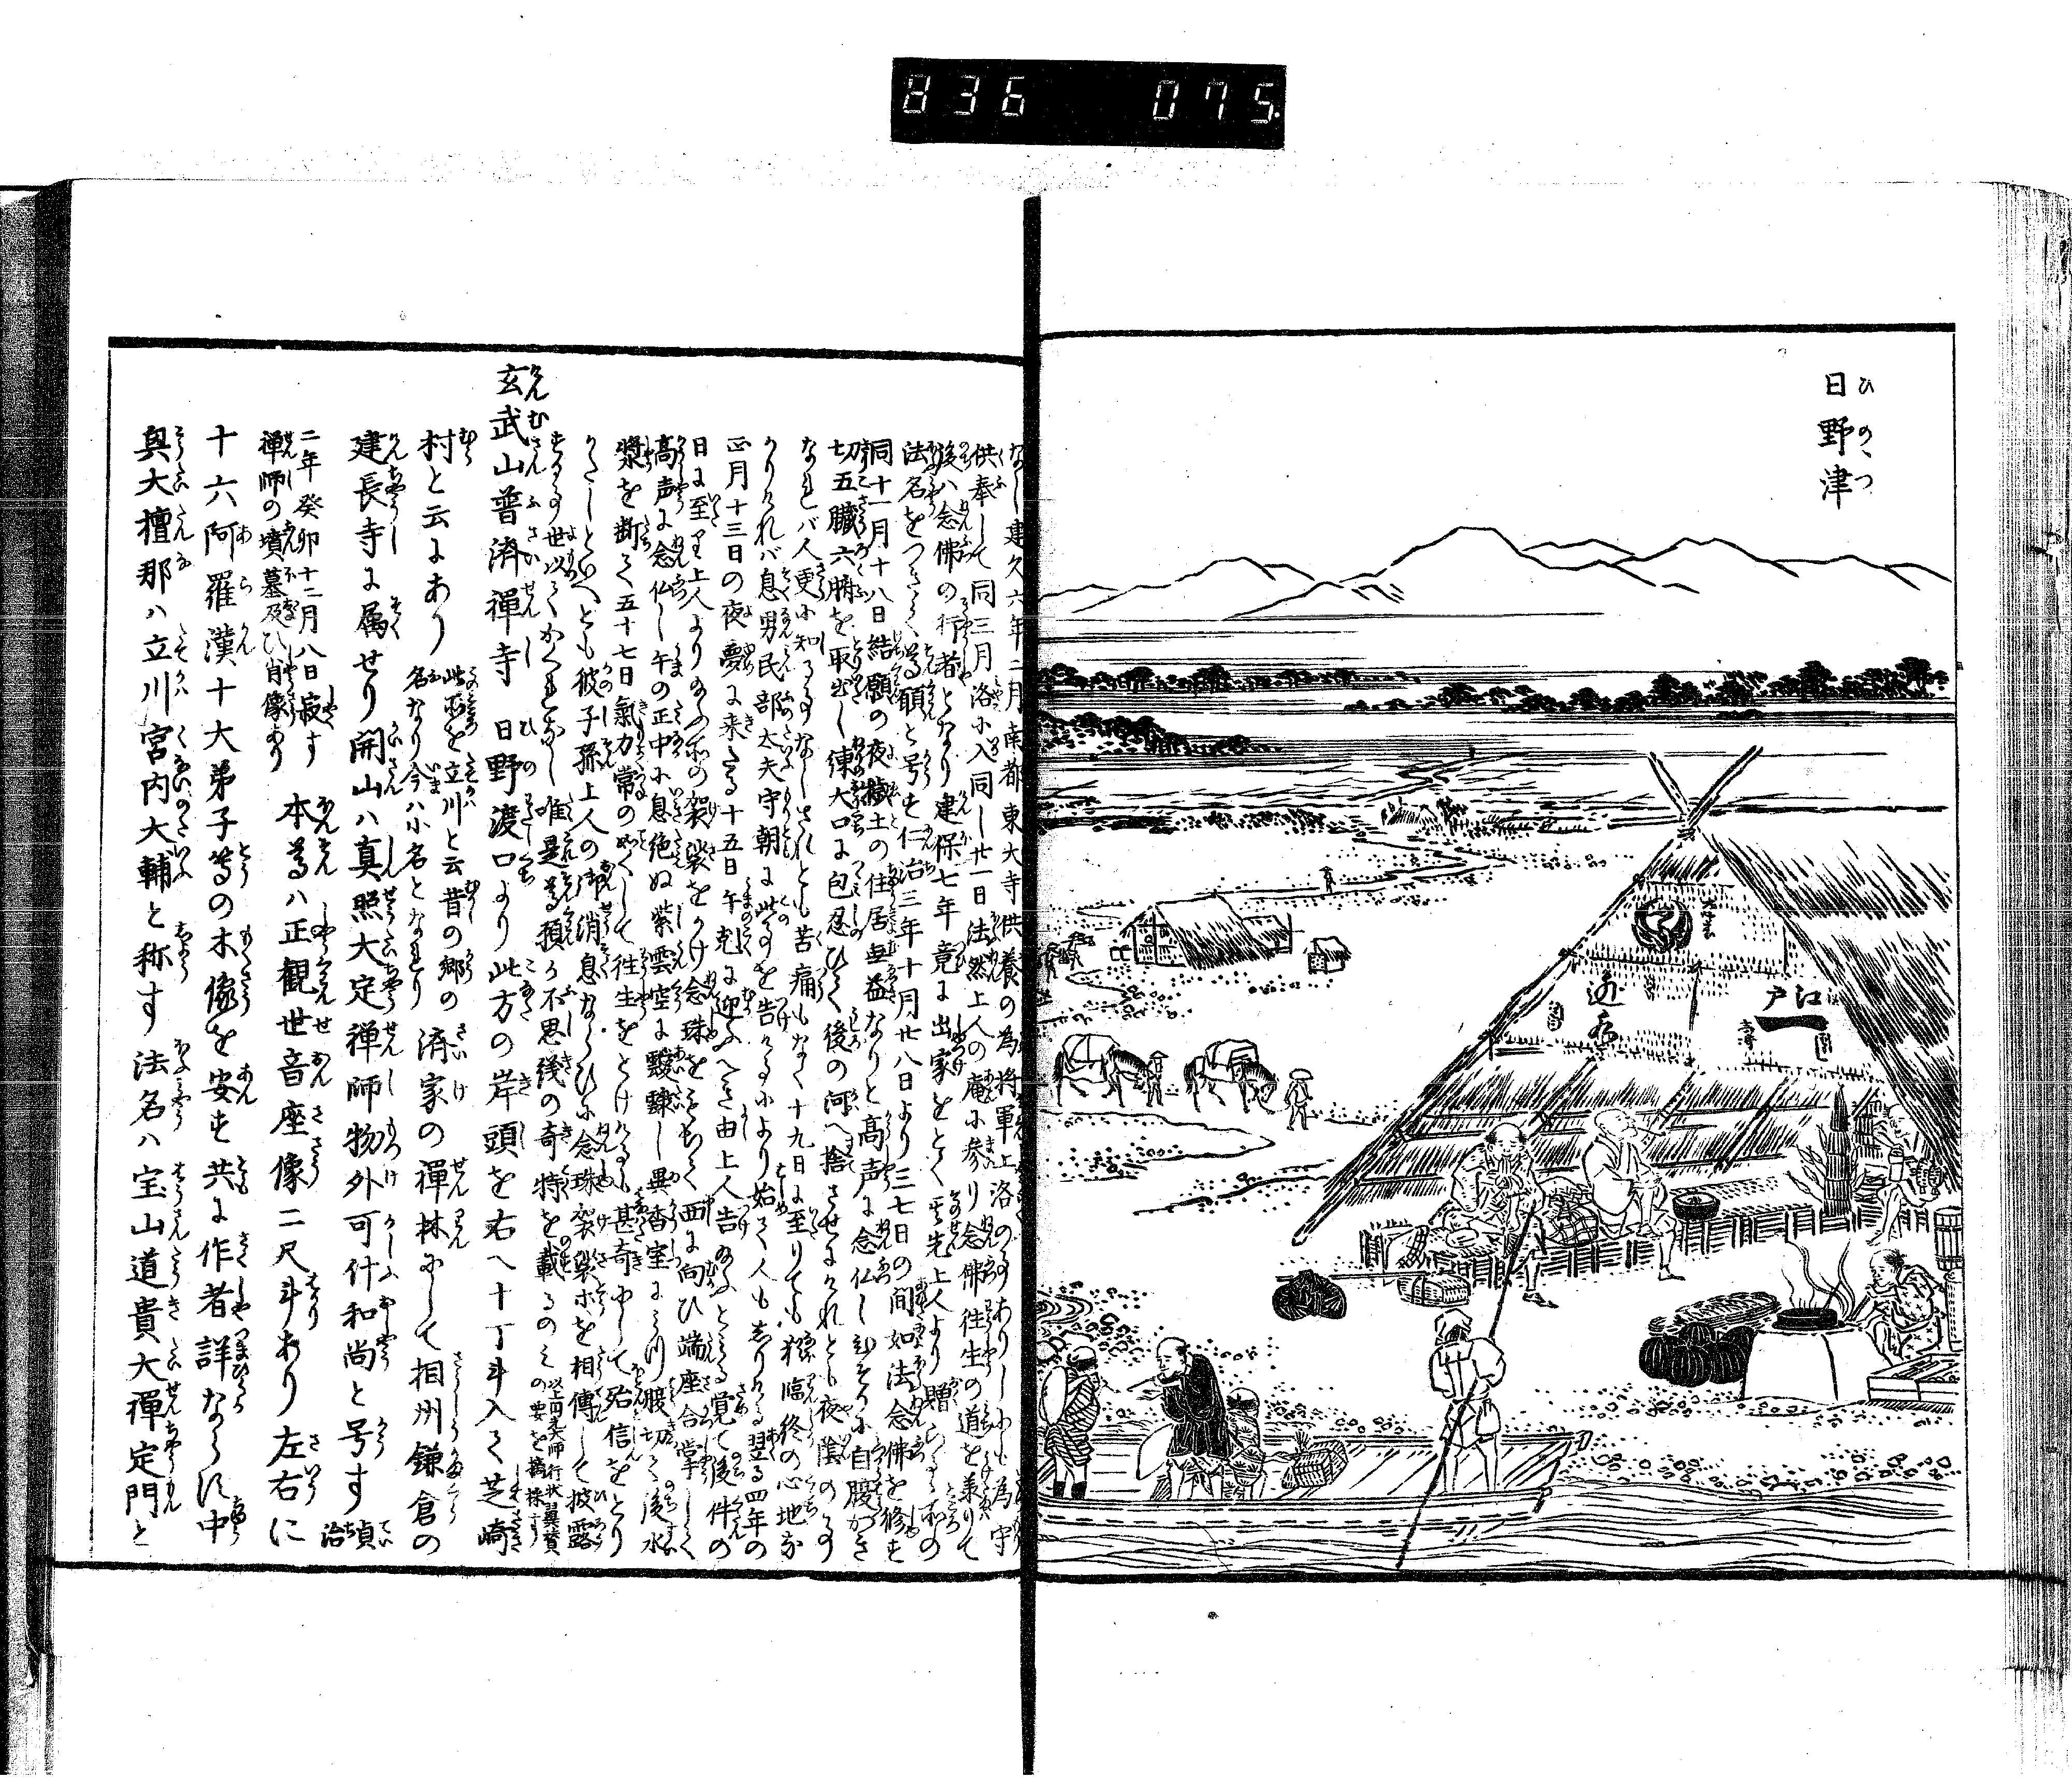 836 075
日野津
江戸一
なし建久六年二月南都東大寺供養の為将軍上洛の事ありしかも為守
供奉して同三月洛に入同し廿一日法然上人の庵に参り念佛往生の道を承りて
後ハ念佛の行者となり建保七年竟に出家をとく其先上人より贈らるゝ所の
法名をつきて尊願と号す仁治三年十月廿八日より三七日の間如法念佛を修す
同十一月十八日結願の夜穢土の住居無益なりと高声に念仏しひそかに自腹かき
切五臓六腑を取出し練大口に包忍ひて後の河へ捨させけれとも夜陰の事
なれバ人更に知る事なしされとも苦痛もなく十九日に至りても猶臨終の心地な
かりけれバ息男民部太夫守朝に此事を告けるにより始て人もしりける翌る四年の
正月十三日の夜夢に来る十五日午剋に迎ふへき由上人告のふとみる覚て後件の
日に至り上人よりの所の袈裟をかけ念珠をもちて西に向ひ端座合掌して
高声に念仏し午の正中に息絶ぬ紫雲空に靉靆し異香室にみつ腹切て後水
漿を断て五十七日氣力常の如くして往生をとけける事甚奇にして殆信をとり
かたしといへとも彼子孫上人の御消息ならひに念珠袈裟ホを相傳して披露
する事世以てかくれなし唯是尊願の不思儀の奇特を載るのミ以上円光大師行状翼賛の要を摘採す
玄武山普済禅寺 日野渡口より此方の岸頭を右へ十丁斗入て芝崎
村と云にあり此所を立川と云昔の郷の名なり今ハ小名となれり 済家の禅林にして相州鎌倉の
建長寺に属せり開山ハ真照大定禅師物外可什和尚と号す貞治
二年癸卯十二月八日寂す禅師の墳墓及ひ肖像あり 本尊ハ正観世音座像二尺斗あり左右に
十六阿羅漢十大弟子等の木像を安す共に作者詳ならす中
興大檀那ハ立川宮内大輔と称す法名ハ宝山道貴大禅定門と